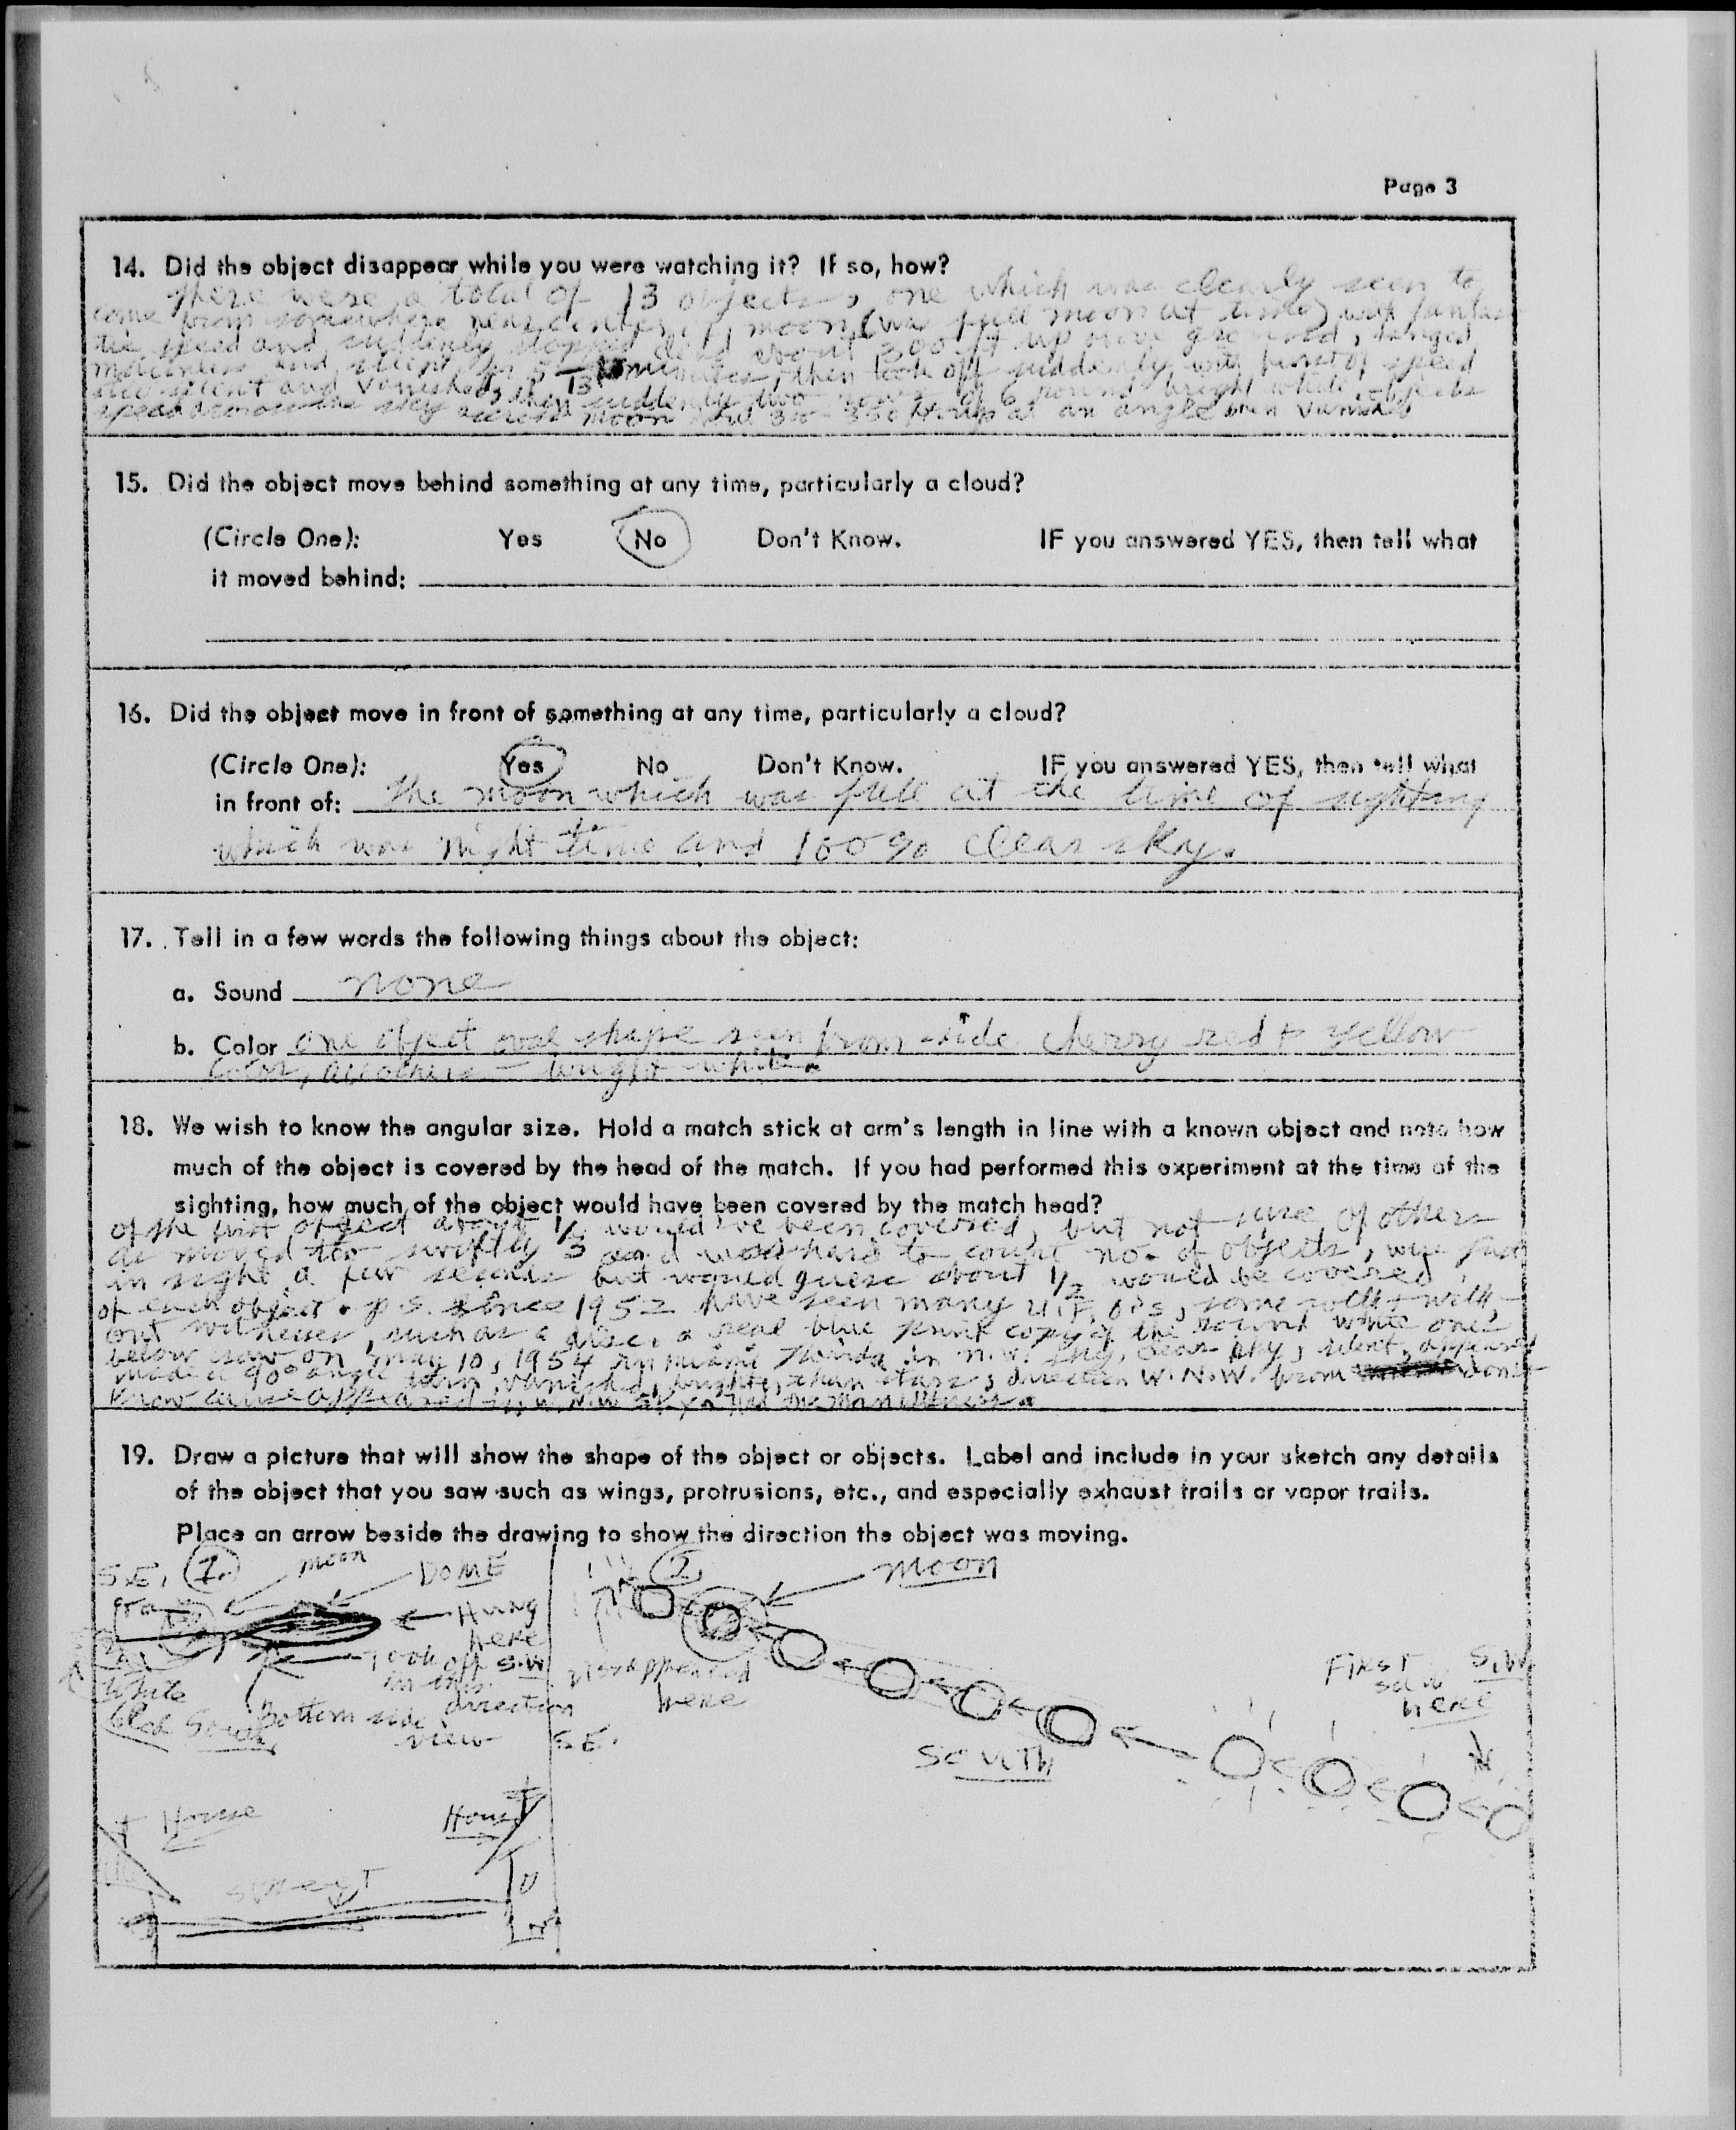 Page 3
14. Did the object disappear while you were watching it? If so, how?
There were a total of 13 objects, one which was clearly seen to
come from somewhere near center of moon (was full moon at time) with
speed and suddenly stopped dead about 300 ft up above ground,
motionless and silent for 5 minutes, then took off suddenly with burst of speed
silent and vanished, then suddenly two rows of 6 round bright white objects
sped across the sky across moon about 300-350 ft up at an angle then vanished
15. Did the object move behind something at any time, particularly a cloud?
(Circle One): Yes No Don't Know. IF you answered YES, then tell what
it moved behind:
16. Did the object move in front of something at any time, particularly a cloud?
(Circle One): Yes No Don't Know. IF you answered YES, then tell what
in front of: the moon which was full at the time of sighting
which was night time and 100% clear sky.
17. Tell in a few words the following things about the object:
a. Sound none
b. Color one object oval shape seen from side cherry red + yellow
color, all others – bright white.
18. We wish to know the angular size. Hold a match stick at arm's length in line with a known object and note how
much of the object is covered by the head of the match. If you had performed this experiment at the time of the
sighting, how much of the object would have been covered by the match head?
of the first object about 1/3 would've been covered, but not sure of others
as moved too swiftly and was hard to count no. of objects, were just
in sight a few seconds but would guess about 1/2 would be covered
of each object. p.s. since 1952 have seen many U.F.O's, some with + with-
out witnesses, such as a disc, a real blue print copy of the round white ones
below saw on May 10, 1954 in Miami Florida in N.W. sky, clear sky, silent, appeared
made a 90° angle turn, vanished, brighter than stars, direction W.N.W. from don't
know cause appeared in W.N.W sky. Had one witness.
19. Draw a picture that will show the shape of the object or objects. Label and include in your sketch any details
of the object that you saw such as wings, protrusions, etc., and especially exhaust trails or vapor trails.
Place an arrow beside the drawing to show the direction the object was moving.
S.E. 1. moon DOME
Hung
here
Took off S.W
in this
direction
White
South
Bottom side
view
House
House
Street
2. moon
Disappeared
here
S.E.
SOUTH
First S.W.
saw
here